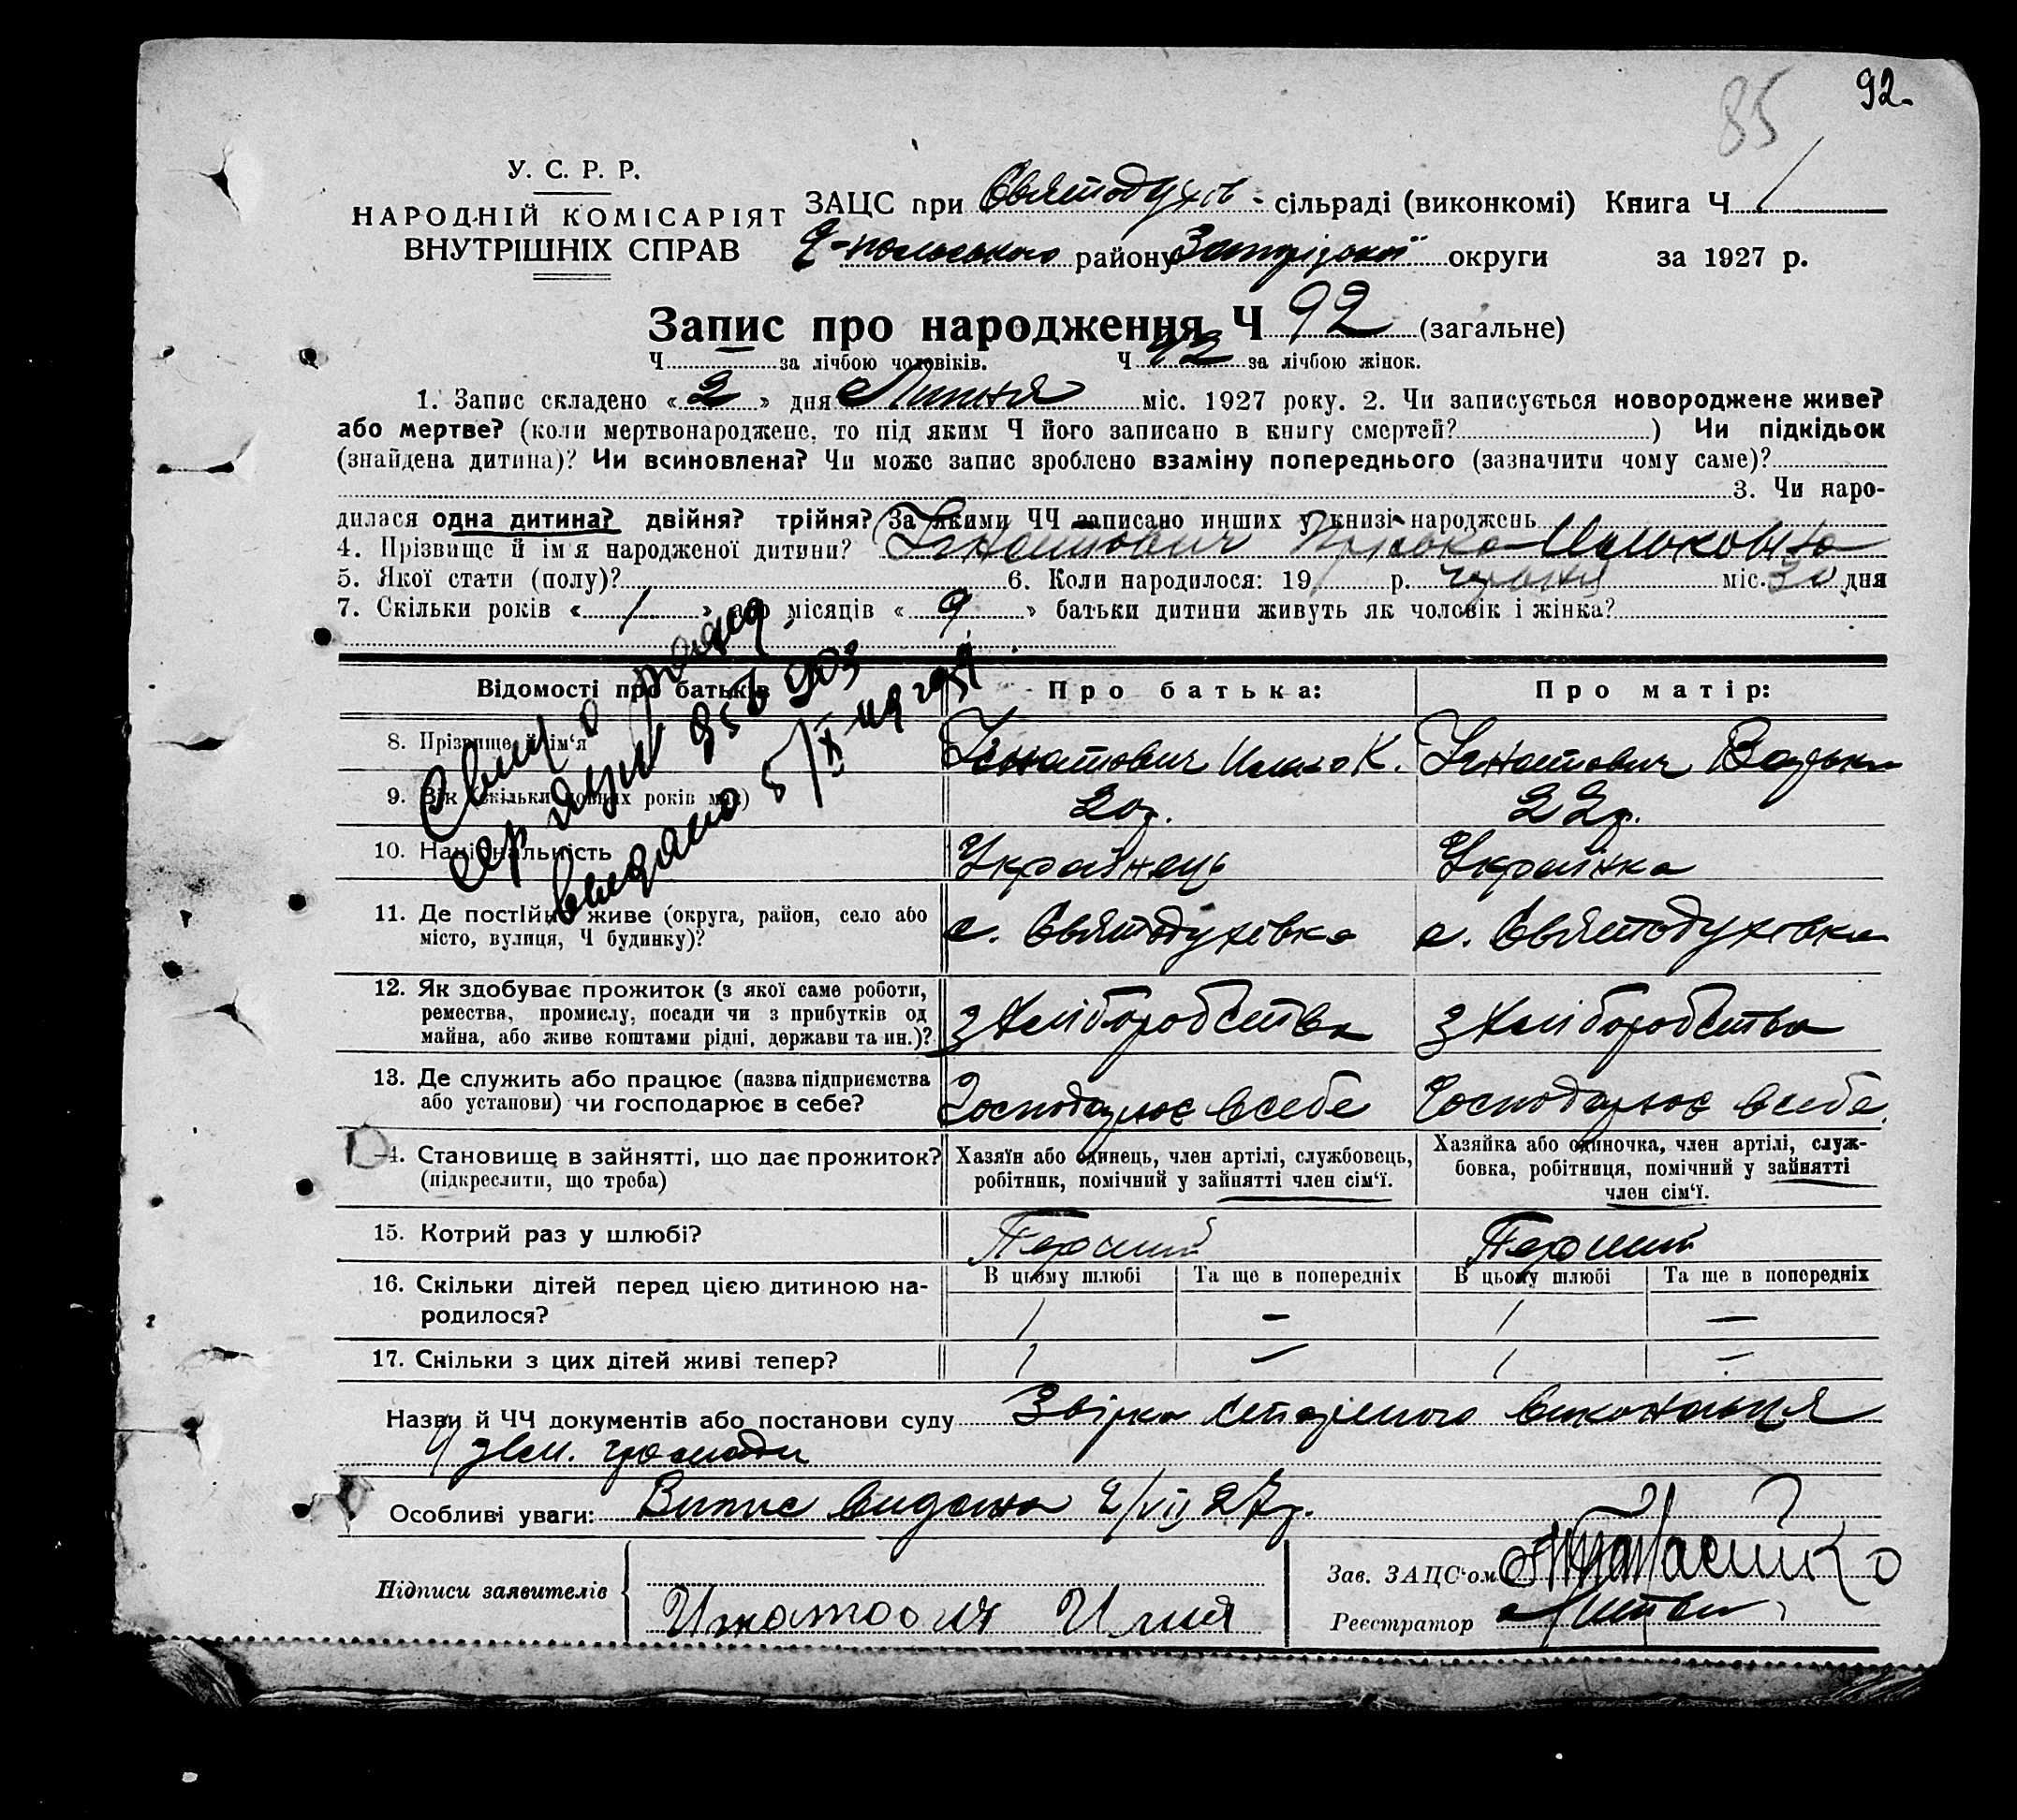 92.
85
У. С. Р. Р.
НАРОДНІЙ КОМІСАРІЯТ
ВНУТРІШНІХ СПРАВ
ЗАЦС при Святодухів - сільраді (виконкомі) Книга Ч 1
району Запорізької округи за 1927 р.
Запис про народження Ч 92 (загальне)
Ч за лічбою чоловіків. Ч 42 за лічбою жінок.
1. Запис складено « 2 » дня Липня міс. 1927 року. 2. Чи записується новороджене живе?
або мертве? (коли мертвонароджене, то під яким Ч його записано в книгу смертей? ) Чи підкідьок
(знайдена дитина)? Чи всиновлена? Чи може запис зроблено взаміну попереднього (зазначити чому саме)?
3. Чи наро-
дилася одна дитина? двійня? трійня? За якими ЧЧ записано инших у книзі народжень
4. Прізвище й ім'я народженої дитини? Ігнатович
5. Якої стати (полу)? 6. Коли народилося: 19 р. червня міс. 30 дня
7. Скільки років « 1 » або місяців « 9 » батьки дитини живуть як чоловік і жінка?
Відомості про батьків
Про батька:
Про матір:
видано 5/X
8. Прізвище й ім'я
Ігнатович
Ігнатович
9. Вік (скільки повних років має)
20р.
22р.
10. Національність
Українець
Українка
11. Де постійно живе (округа, район, село або
місто, вулиця, Ч будинку)?
с. Святодухівка
с. Святодухівка
12. Як здобуває прожиток (з якої саме роботи,
ремества, промислу, посади чи з прибутків од
майна, або живе коштами рідні, держави та ин.)?
З Хліборобства
З Хліборобства
13. Де служить або працює (назва підприємства
або установи) чи господарює в себе?
Господарює всебе
Господарює всебе
14. Становище в зайнятті, що дає прожиток?
(підкреслити, що треба)
Хазяїн або одинець, член артілі, службовець,
робітник, помічний у зайнятті член сім'ї.
Хазяйка або одиночка, член артілі, служ-
бовка, робітниця, помічний у зайнятті
член сім'ї.
15. Котрий раз у шлюбі?
Перший
Перший
16. Скільки дітей перед цією дитиною на-
родилося?
В цьому шлюбі | Та ще в попередніх
В цьому шлюбі | Та ще в попередніх
1 — 1 —
17. Скільки з цих дітей живі тепер?
1 — 1 —
Назви й ЧЧ документів або постанови суду Звірка виконавця
зем. громади
Особливі уваги: Випис видана 2/VII 27р.
Підписи заявителів
Игнатович Илия
Зав. ЗАЦС'ом
Реєстратор